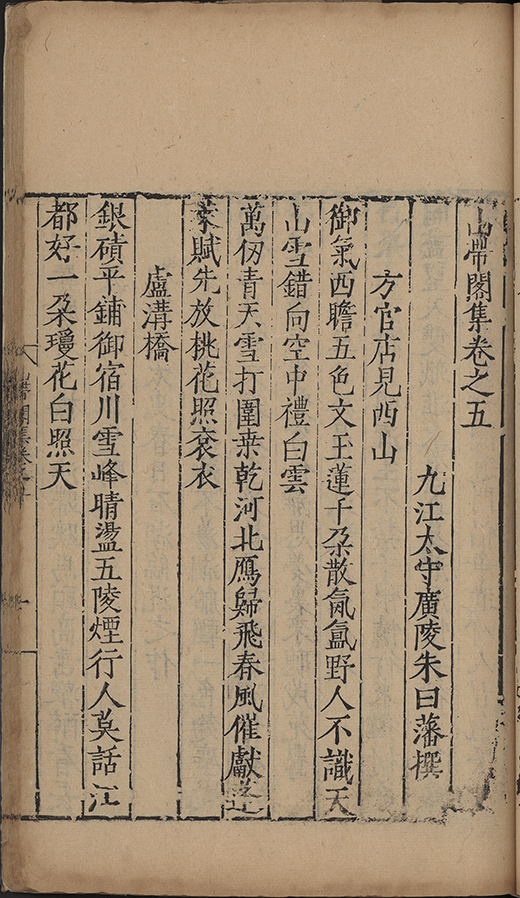 山帶閣集卷之五
九江太守廣陵朱曰藩撰
方官店見西山
御氣西瞻五色文玉蓮千朶散氤氳野人不識天
山雪錯向空中禮白雲
萬仞青天雪打圍桒乾河北鴈歸飛春風催獻蓬
萊賦先放桃花照袞衣
盧溝橋
銀磧平鋪御宿川雪峰晴盪五陵煙行人莫話江
都好一朶瓊花白照天